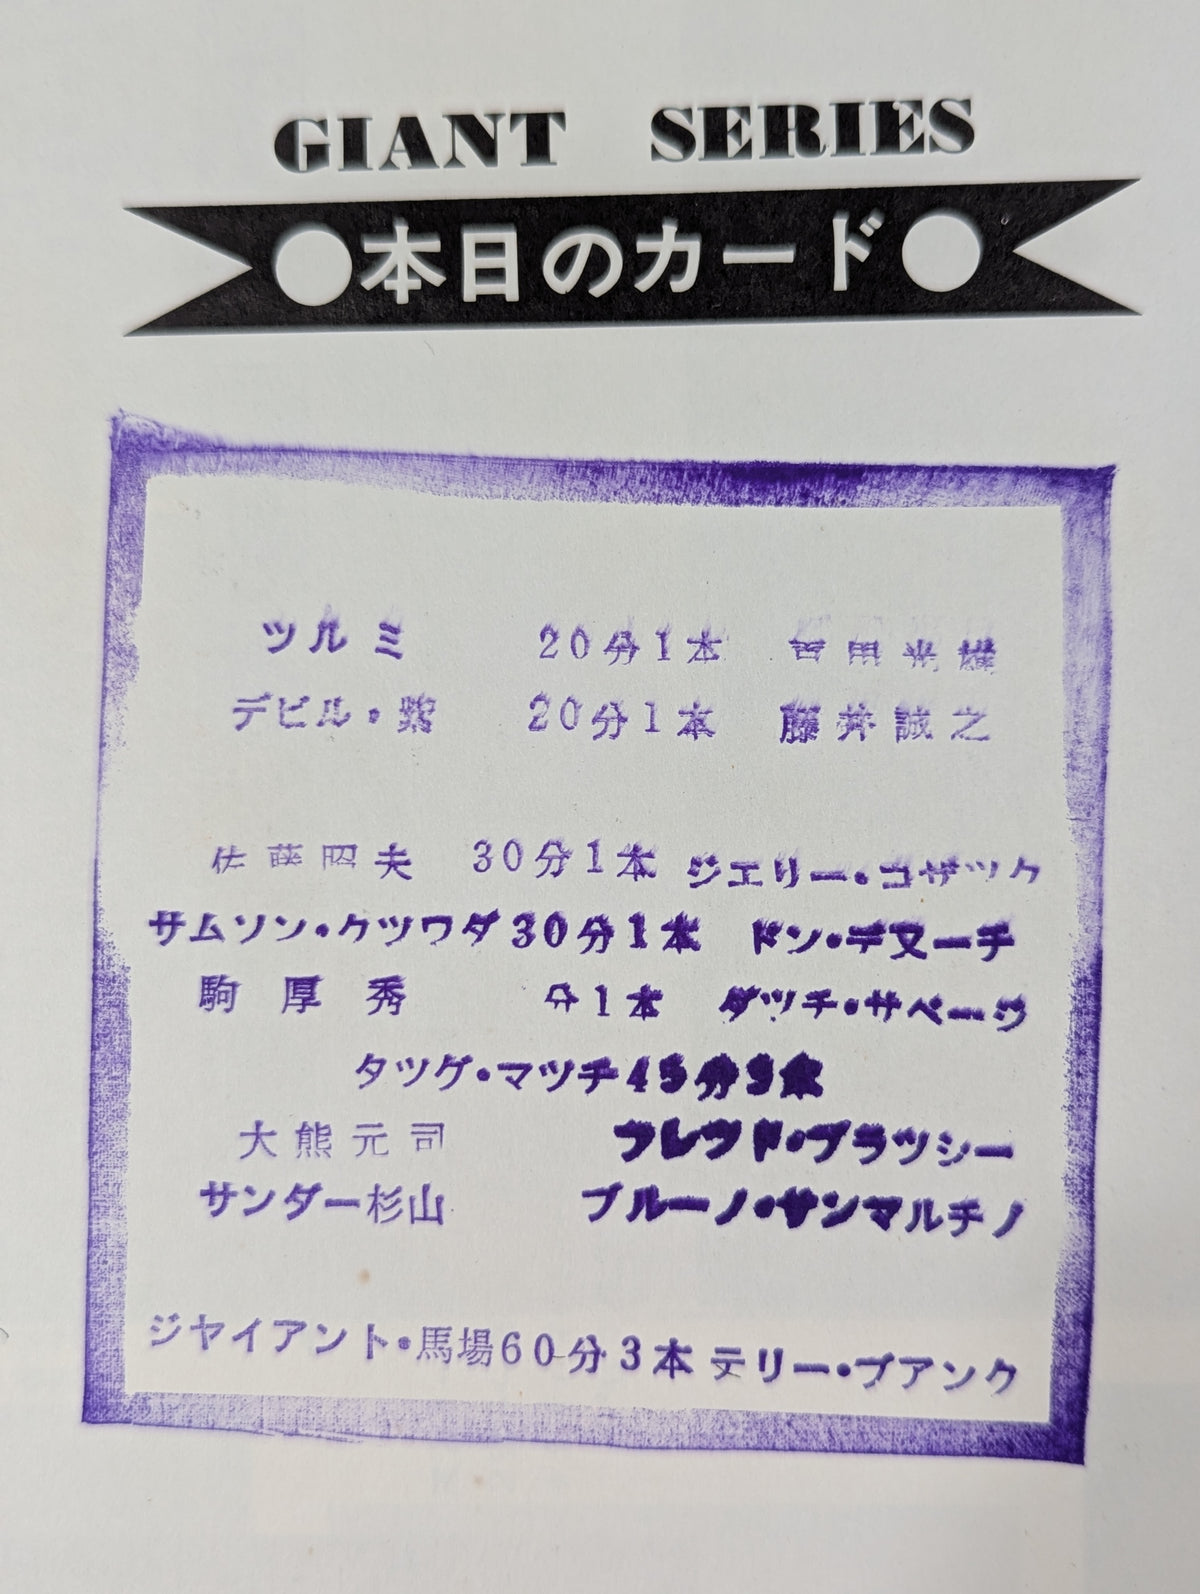 GIANT SERIES
●本日のカード●
ツルミ 20分1本 吉田光雄
デビル・紫 20分1本 藤井誠之
佐藤昭夫 30分1本 ジエリー・コザツク
サムソン・クツワダ 30分1本 ドン・デヌーチ
駒厚秀 分1本 ダツチ・サベージ
タツグ・マツチ45分3本
大熊元司 フレツド・ブラツシー
サンダー杉山 ブルーノ・サンマルチノ
ジヤイアント・馬場60分3本 テリー・フアンク